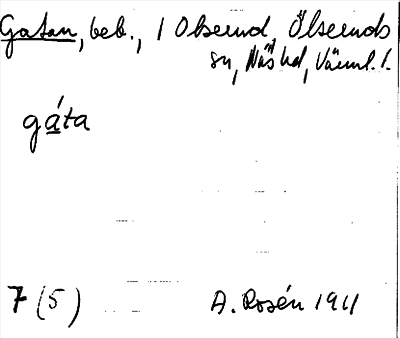 Gatan, beb., 1 Ölserud, Ölseruds
sn, Näs hd, Värml. l.
gáta
7 (5)
A. Rosén 1911